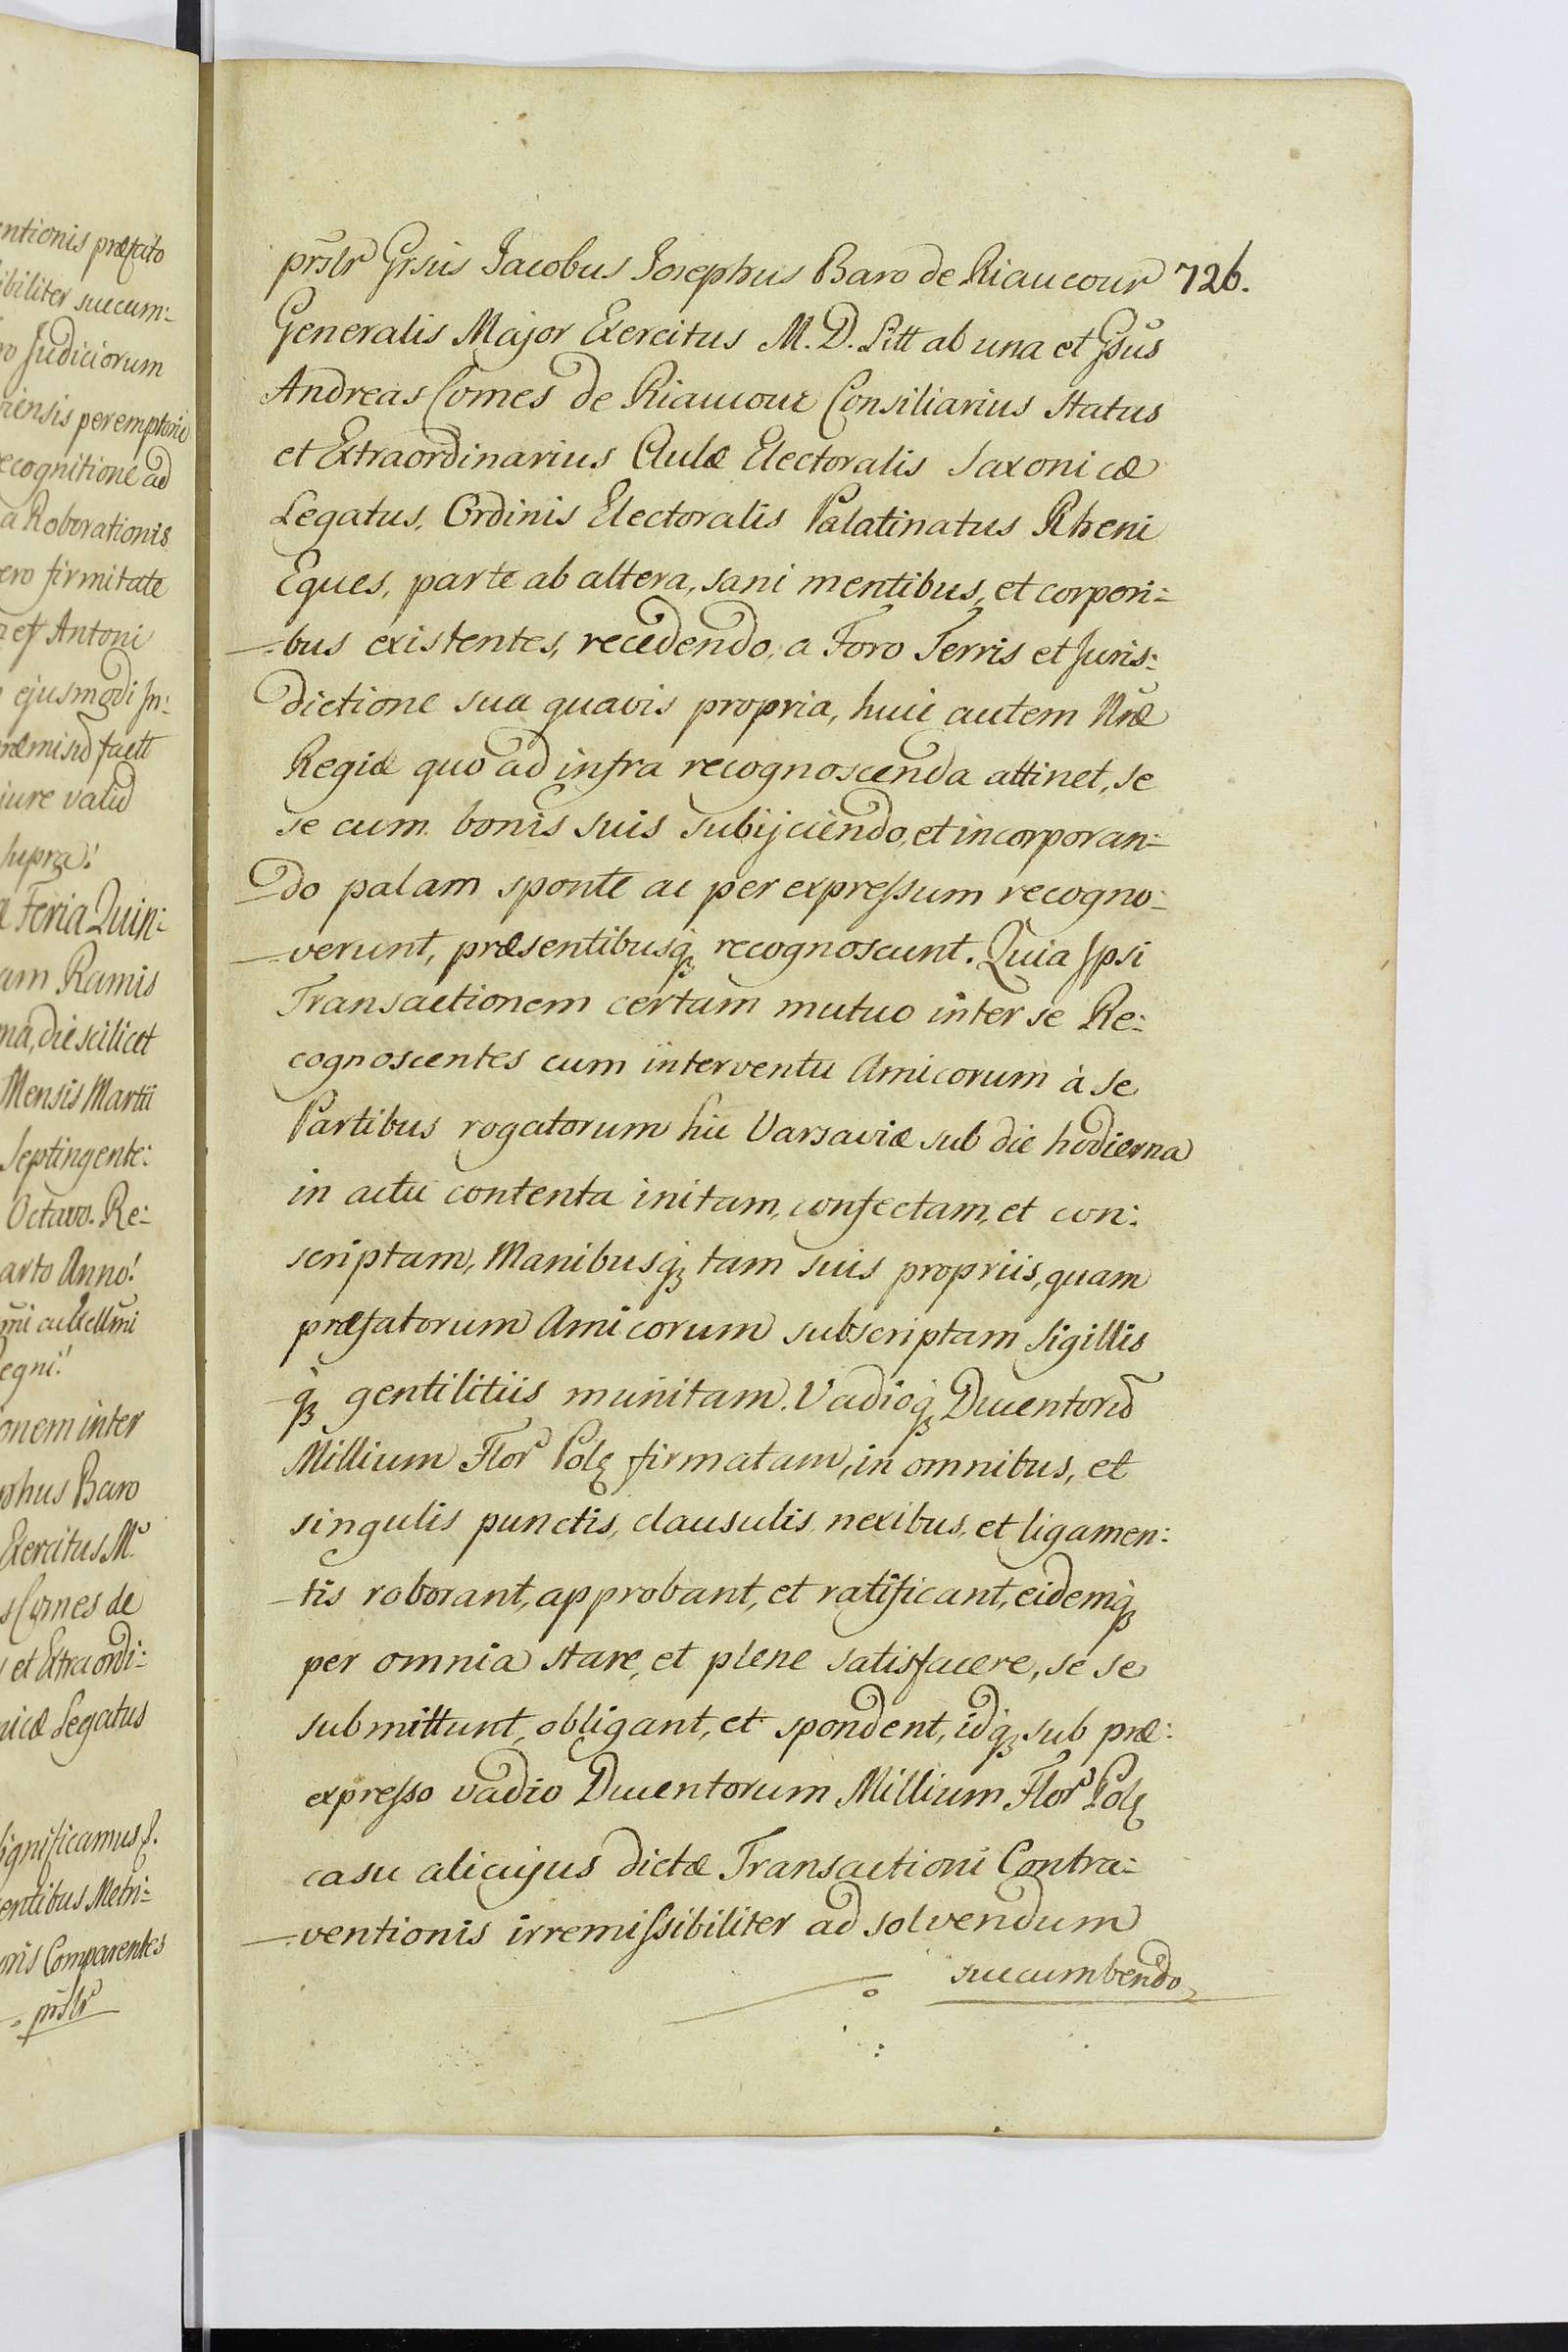 entionis præfato
ibiliter succum:
ro Judiciorum
riensis peremptorie
ecognitione ad
a Roborationis
ero firmitate
Antoni
ejusmodi In:
ræmisid factt
iure valid
supra!
Feria Quin:
am Ramis
na, die scilicet
Mensis Martii
Septingente:
Octavo. Re:
arto Anno!
egni!
onem inter
phus Baro
Exercitus M.
s Comes de
et Extraordi:
nicæ Legatus
ignificamus
entibus Metri:
oris Comparentes
prslr
prslr Grsus Jacobus Josephus Baro de Riaucour 726.
Generalis Major Exercitus M. D. Litt ab una et Gsus
Andreas Comes de Riaucour Consiliarius Status
et Extraordinarius Aulæ Electoralis Saxonicæ
Legatus, Ordinis Electoralis Palatinatus Rheni
Eques, parte ab altera, sani mentibus, et corpori:
bus existentes, recedendo, a Foro Terris et Juris:
dictione sua quavis propria, huic autem Nræ
Regiæ quo ad infra recognoscenda attinet, se
se cum bonis suis subijciendo, et incorporan:
do palam sponte ac per expressum recogno:
verunt, præsentibusq; recognoscunt. Quia Ipsi
Transactionem certam mutuo inter se Re:
cognoscentes cum interventu Amicorum à se
Partibus rogatorum hic Varsaviæ sub die hodierna
in actu contenta initam, confectam, et con:
scriptam, Manibusq; tam suis propriis, quam
præfatorum Amicorum subscriptam Sigillis
q; gentilitiis munitam. Vadioq; Ducentorū
Millium Flor Pol firmatam, in omnibus, et
singulis punctis, clausulis nexibus, et ligamen:
tis roborant, approbant, et ratificant, eidemq;
per omnia stare, et plene satisfacere, se se
submittunt, obligant, et spondent, idq; sub præ:
expresso vadio Ducentorum Millium Flor Pol
casu alicujus dictæ Transactioni Contra:
ventionis irremissibiliter ad solvendum
succumbendo